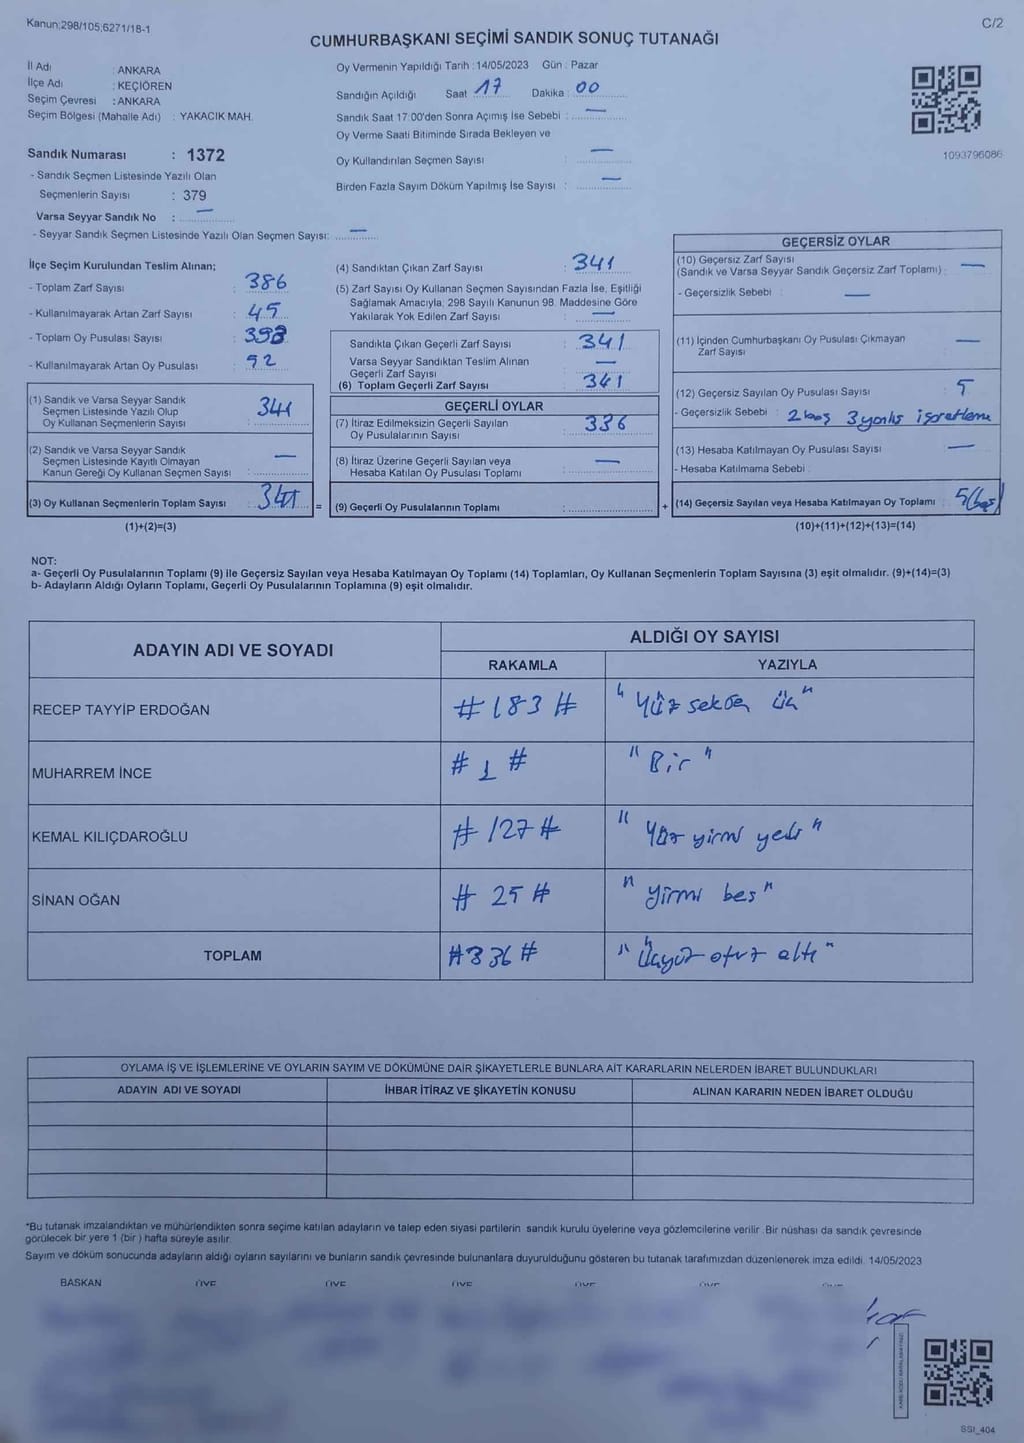 Kanun;298/105;6271/18-1
C/2
CUMHURBAŞKANI SEÇİMİ SANDIK SONUÇ TUTANAĞI
İl Adı : ANKARA
İlçe Adı : KEÇİÖREN
Seçim Çevresi : ANKARA
Seçim Bölgesi (Mahalle Adı) : YAKACIK MAH.
Sandık Numarası : 1372
- Sandık Seçmen Listesinde Yazılı Olan
Seçmenlerin Sayısı : 379
Varsa Seyyar Sandık No : —
- Seyyar Sandık Seçmen Listesinde Yazılı Olan Seçmen Sayısı: —
Oy Vermenin Yapıldığı Tarih : 14/05/2023 Gün : Pazar
Sandığın Açıldığı Saat 17 Dakika : 00
Sandık Saat 17:00'den Sonra Açımış İse Sebebi : —
Oy Verme Saati Bitiminde Sırada Bekleyen ve
Oy Kullandırılan Seçmen Sayısı : —
Birden Fazla Sayım Döküm Yapılmış İse Sayısı : —
1093796086
İlçe Seçim Kurulundan Teslim Alınan;
- Toplam Zarf Sayısı : 386
- Kullanılmayarak Artan Zarf Sayısı : 45
- Toplam Oy Pusulası Sayısı :
- Kullanılmayarak Artan Oy Pusulası :
(1) Sandık ve Varsa Seyyar Sandık
Seçmen Listesinde Yazılı Olup
Oy Kullanan Seçmenlerin Sayısı : 341
(2) Sandık ve Varsa Seyyar Sandık
Seçmen Listesinde Kayıtlı Olmayan
Kanun Gereği Oy Kullanan Seçmen Sayısı : —
(3) Oy Kullanan Seçmenlerin Toplam Sayısı : 341 =
(1)+(2)=(3)
(4) Sandıktan Çıkan Zarf Sayısı : 341
(5) Zarf Sayısı Oy Kullanan Seçmen Sayısından Fazla İse, Eşitliği
Sağlamak Amacıyla; 298 Sayılı Kanunun 98. Maddesine Göre
Yakılarak Yok Edilen Zarf Sayısı : —
Sandıkta Çıkan Geçerli Zarf Sayısı : 341
Varsa Seyyar Sandıktan Teslim Alınan
Geçerli Zarf Sayısı : —
(6) Toplam Geçerli Zarf Sayısı : 341
GEÇERLİ OYLAR
(7) İtiraz Edilmeksizin Geçerli Sayılan
Oy Pusulalarının Sayısı : 336
(8) İtiraz Üzerine Geçerli Sayılan veya
Hesaba Katılan Oy Pusulası Toplamı : —
(9) Geçerli Oy Pusulalarının Toplamı : +
GEÇERSİZ OYLAR
(10) Geçersiz Zarf Sayısı
(Sandık ve Varsa Seyyar Sandık Geçersiz Zarf Toplamı) : —
- Geçersizlik Sebebi : —
(11) İçinden Cumhurbaşkanı Oy Pusulası Çıkmayan
Zarf Sayısı : —
(12) Geçersiz Sayılan Oy Pusulası Sayısı : 5
- Geçersizlik Sebebi : 2 boş 3 yanlış işaretleme
(13) Hesaba Katılmayan Oy Pusulası Sayısı : —
- Hesaba Katılmama Sebebi :
(14) Geçersiz Sayılan veya Hesaba Katılmayan Oy Toplamı : 5 (beş)
(10)+(11)+(12)+(13)=(14)
NOT:
a- Geçerli Oy Pusulalarının Toplamı (9) ile Geçersiz Sayılan veya Hesaba Katılmayan Oy Toplamı (14) Toplamları, Oy Kullanan Seçmenlerin Toplam Sayısına (3) eşit olmalıdır. (9)+(14)=(3)
b- Adayların Aldığı Oyların Toplamı, Geçerli Oy Pusulalarının Toplamına (9) eşit olmalıdır.
ADAYIN ADI VE SOYADI ALDIĞI OY SAYISI
RAKAMLA YAZIYLA
RECEP TAYYİP ERDOĞAN #183# "Yüz seksen üç"
MUHARREM İNCE #1# "Bir"
KEMAL KILIÇDAROĞLU #127# "Yüz yirmi yedi"
SİNAN OĞAN #25# "yirmi beş"
TOPLAM #336# "Üçyüz otuz altı"
OYLAMA İŞ VE İŞLEMLERİNE VE OYLARIN SAYIM VE DÖKÜMÜNE DAİR ŞİKAYETLERLE BUNLARA AİT KARARLARIN NELERDEN İBARET BULUNDUKLARI
ADAYIN ADI VE SOYADI İHBAR İTİRAZ VE ŞİKAYETİN KONUSU ALINAN KARARIN NEDEN İBARET OLDUĞU
*Bu tutanak imzalandıktan ve mühürlendikten sonra seçime katılan adayların ve talep eden siyasi partilerin sandık kurulu üyelerine veya gözlemcilerine verilir. Bir nüshası da sandık çevresinde
görülecek bir yere 1 (bir) hafta süreyle asılır.
Sayım ve döküm sonucunda adayların aldığı oyların sayılarını ve bunların sandık çevresinde bulunanlara duyurulduğunu gösteren bu tutanak tarafımızdan düzenlenerek imza edildi. 14/05/2023
BAŞKAN ÜYE ÜYE ÜYE ÜYE ÜYE
SSI_404